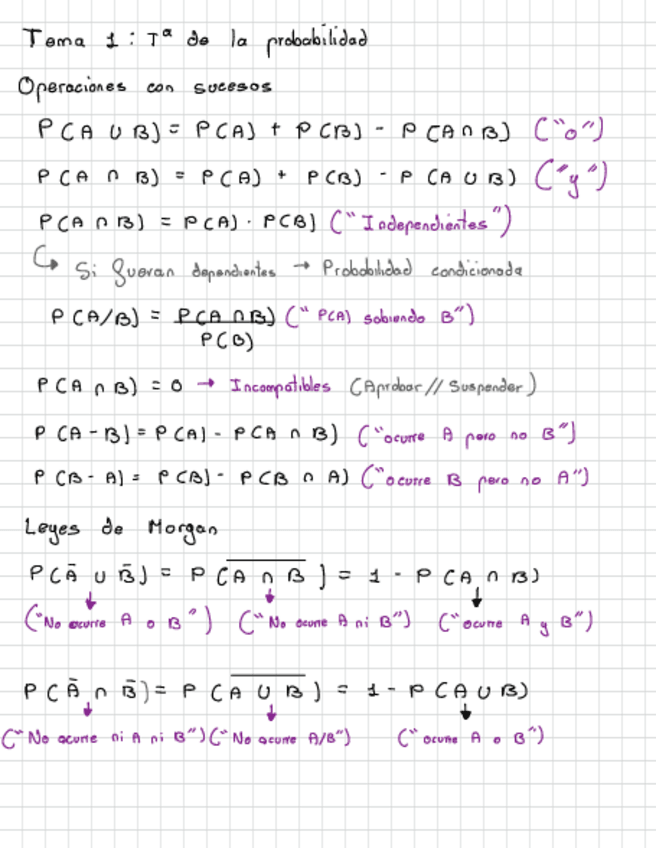 Tema 1: Tª de la probabilidad
Operaciones con sucesos
P(A ∪ B) = P(A) + P(B) - P(A ∩ B) ("o")
P(A ∩ B) = P(A) + P(B) - P(A ∪ B) ("y")
P(A ∩ B) = P(A) · P(B) ("Independientes")
↳ Si fueran dependientes → Probabilidad condicionada
P(A/B) = P(A ∩ B) / P(B) ("P(A) sabiendo B")
P(A ∩ B) = 0 → Incompatibles (Aprobar // Suspender)
P(A - B) = P(A) - P(A ∩ B) ("ocurre A pero no B")
P(B - A) = P(B) - P(B ∩ A) ("ocurre B pero no A")
Leyes de Morgan
P(Ā ∪ B̄) = P(A̅ ̅∩̅ ̅B̅) = 1 - P(A ∩ B)
("No ocurre A o B") ("No ocurre A ni B") ("ocurre A y B")
P(Ā ∩ B̄) = P(A̅ ̅∪̅ ̅B̅) = 1 - P(A ∪ B)
("No ocurre ni A ni B") ("No ocurre A/B") ("ocurre A o B")